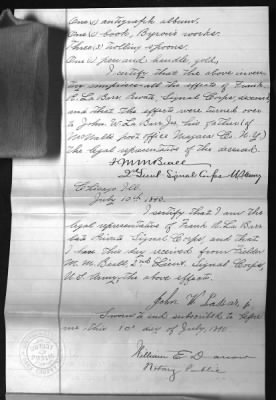 One (1) autograph album.
One (1) book, Byron's works.
Three (3) trolling spoons.
One (1) pen and handle, gold,
I certify that the above inven-
tory comprises all the effects of Frank
N. La Barr Private, Signal Corps, deceased
and that the effects were turned over
to John W. La Barr Jr. his father of
post office Niagara Co. N.Y.
the legal representative of the deceased.
F M M Beall
2d Lieut. Signal Corps U.S. Army
Chicago Ill.
July 10th 1890.
I certify that I am the
legal representative of Frank N. La Barr
Private Signal Corps, and that
I have this day received from Fielder
M. M. Beall 2nd Lieut. Signal Corps,
U.S. Army, the above effects.
John W. LaBar, Jr.
Sworn to and subscribed to before
me this 10th day of July, 1890
William E.
Notary Public